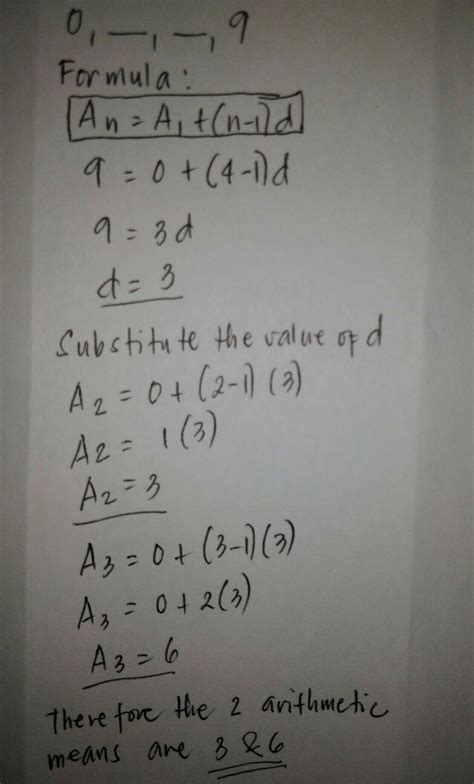 0, __, __, 9
Formula:
An = A1 + (n-1)d
9 = 0 + (4-1)d
9 = 3d
d = 3
Substitute the value of d
A2 = 0 + (2-1) (3)
A2 = 1(3)
A2 = 3
A3 = 0 + (3-1)(3)
A3 = 0 + 2(3)
A3 = 6
Therefore the 2 arithmetic
means are 3 & 6